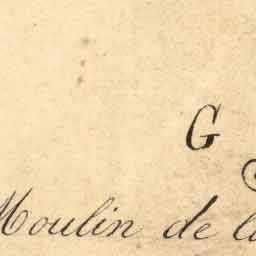 G
Moulin de la